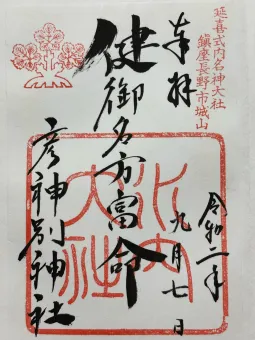 延喜式内名神大社
鎮座長野市城山
奉拝
令和二年
九月七日
健御名方富命
彦神別神社
水内大社